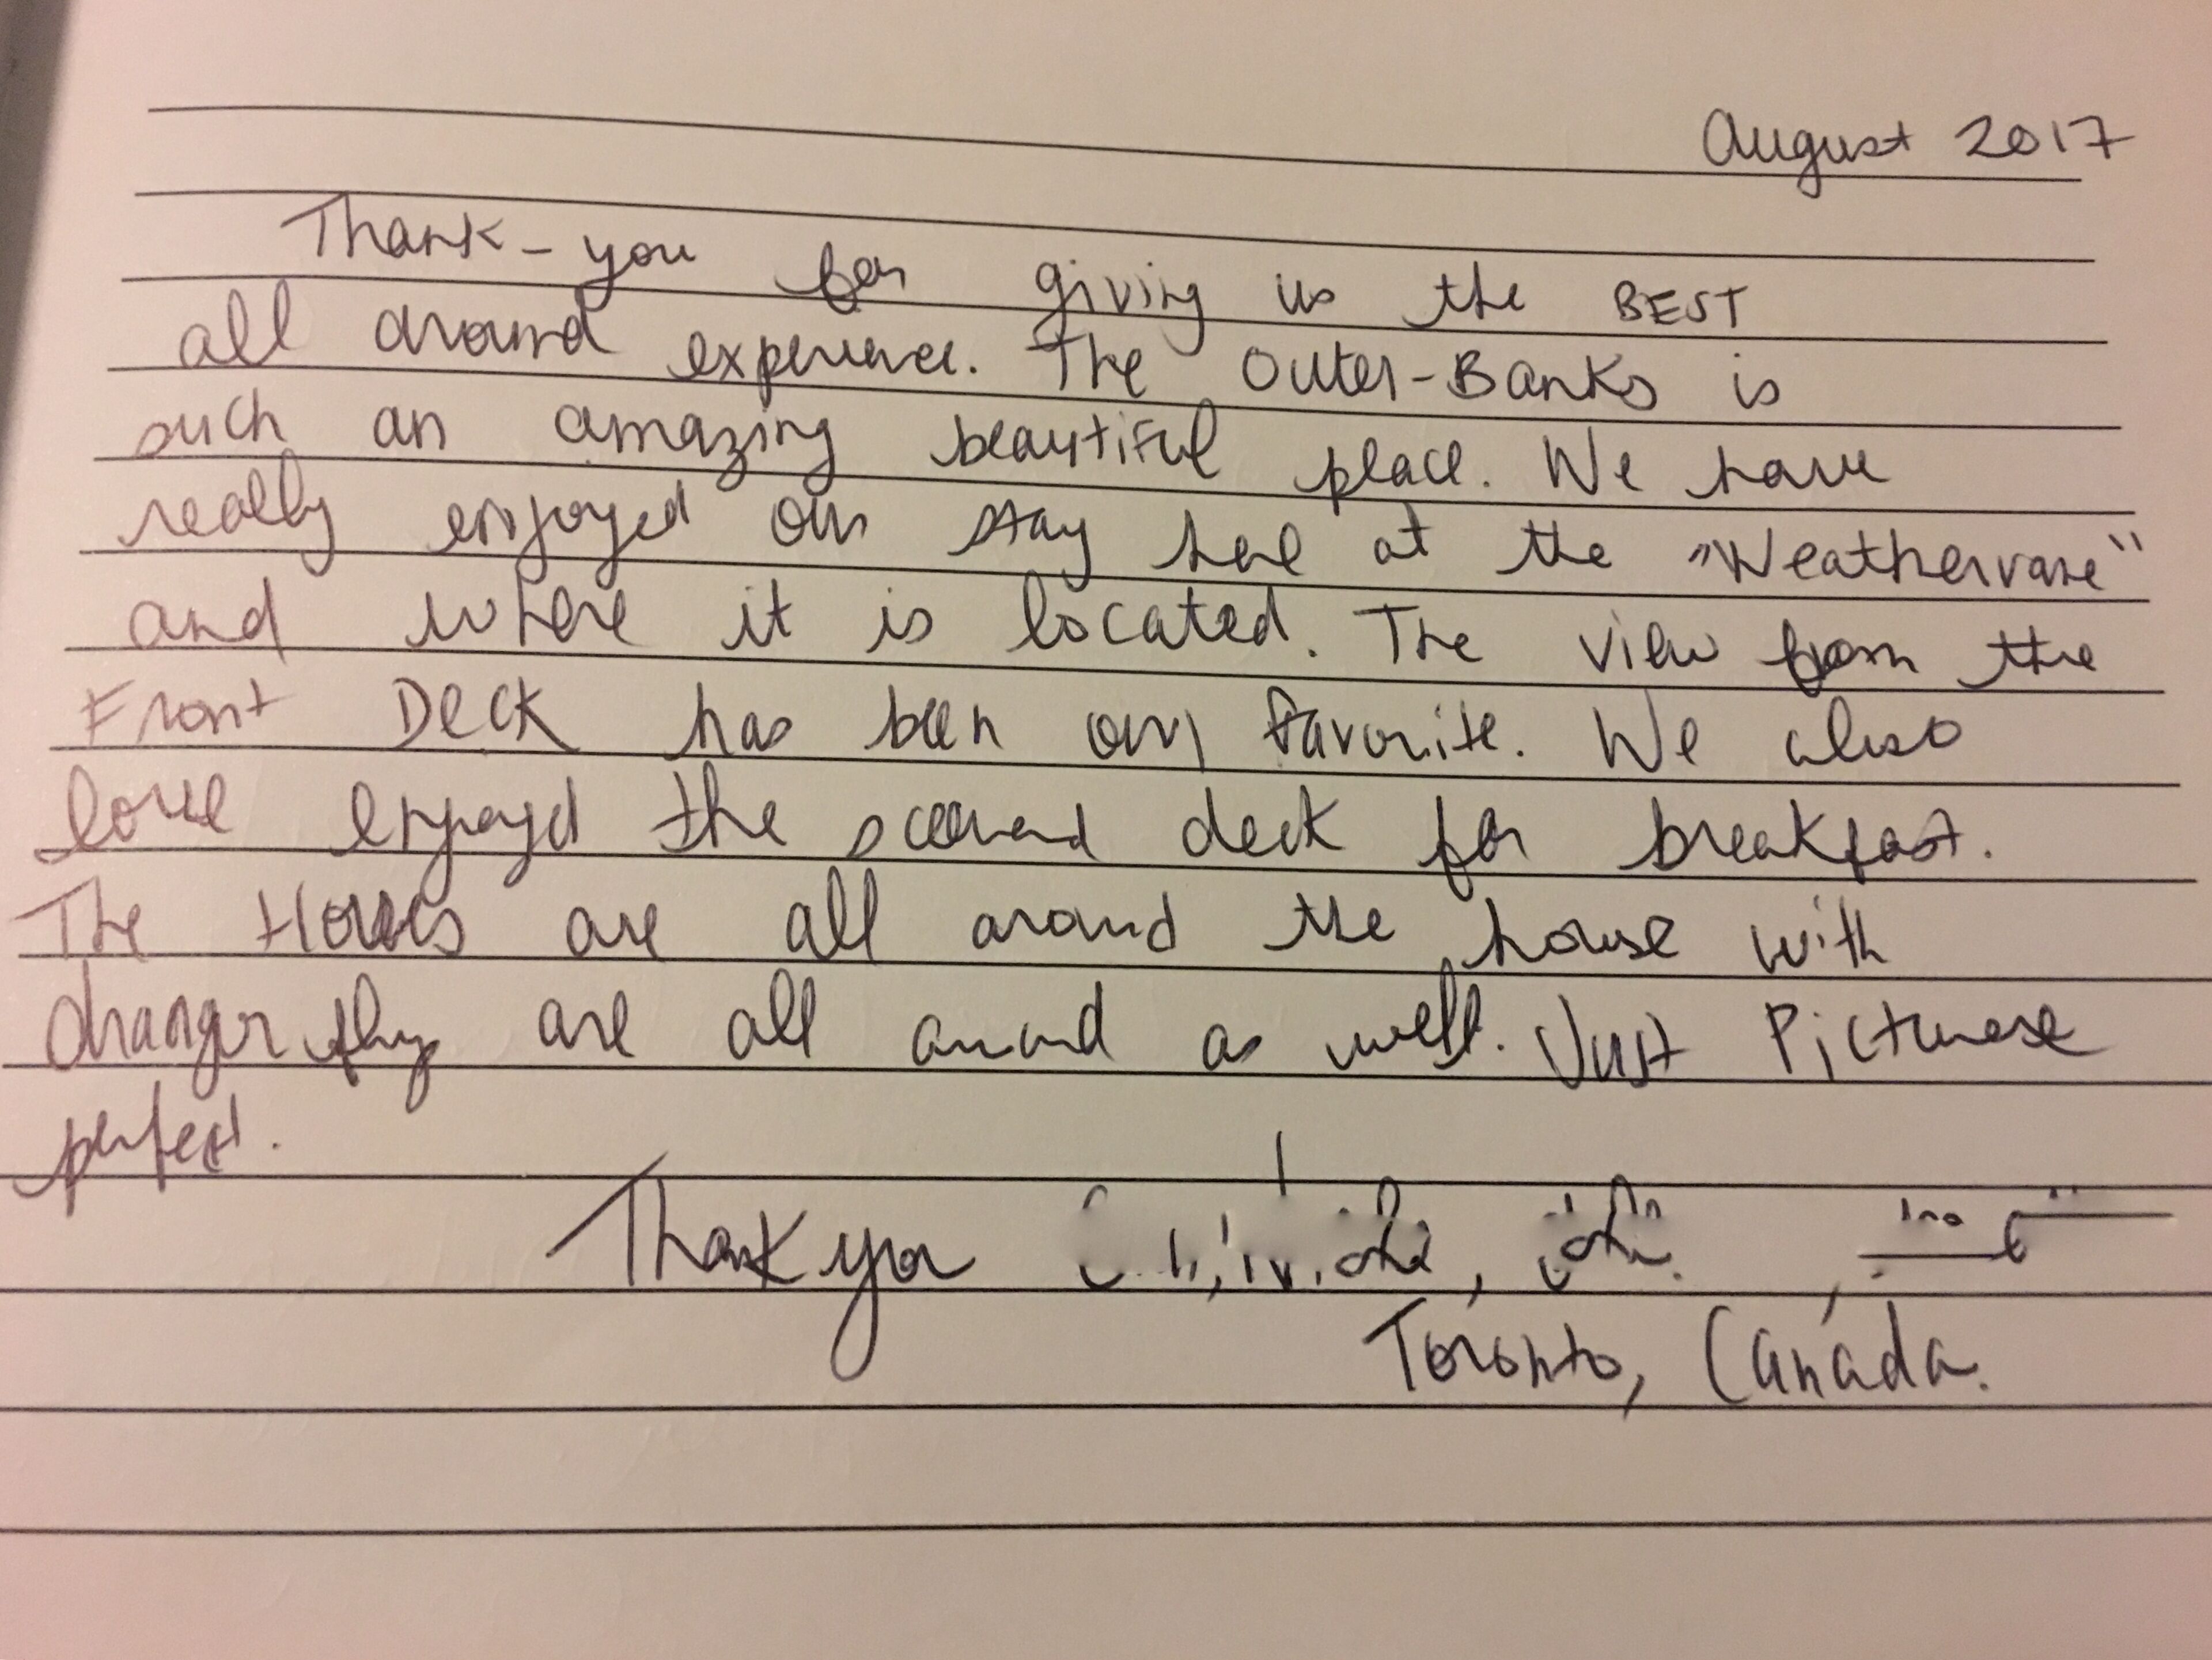 August 2017
Thank-you for giving us the BEST
all around experience. The Outer-Banks is
such an amazing beautiful place. We have
really enjoyed our stay here at the "Weathervane"
and where it is located. The view from the
Front Deck has been our favorite. We also
love enjoyed the second deck for breakfast.
The Horses are all around the house with
dranger fly are all around as well. Just Picturese
perfect.
Thank you
Toronto, Canada.